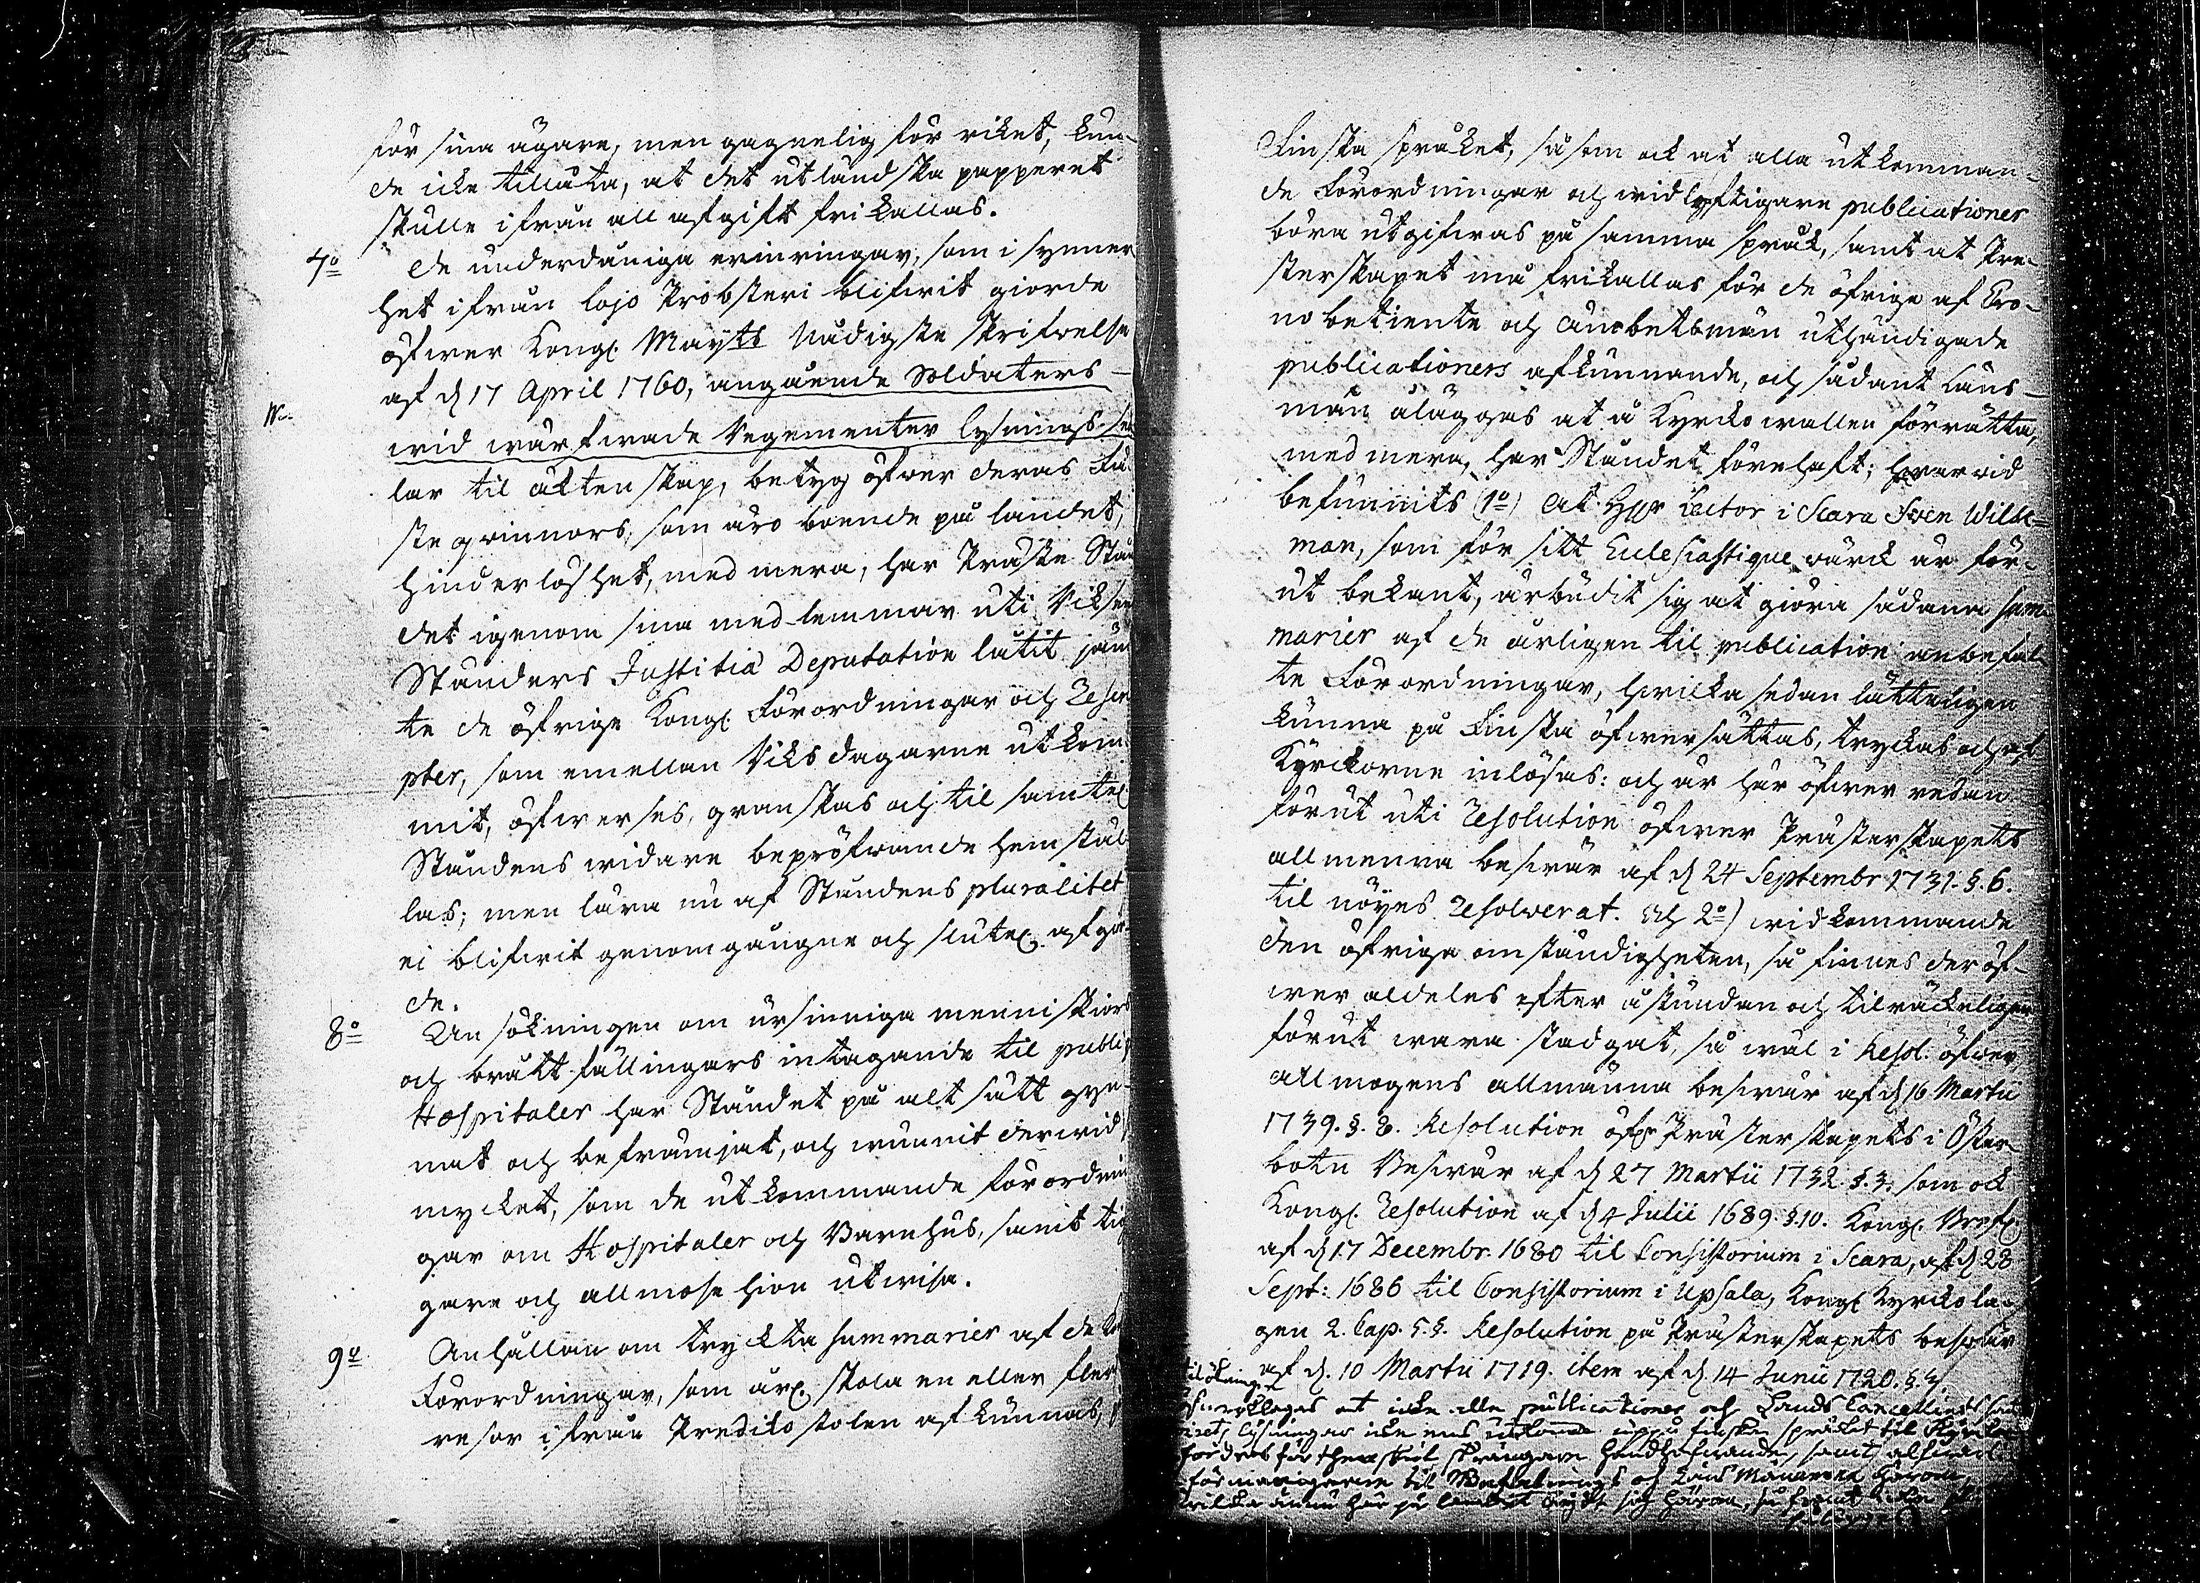 för sina ägare, men gagnelig för riket, kun-
de icke tillåta, at det utländska papperet
skulle ifrån all afgift frikallas.
7:o De underdåniga erinringar, som i synner
het ifrån Lojo Probsteri blifwit giorde
öfwer Kongl. Maÿ:ts Nådigste skrifwelse
af d 17 April 1760, angående Soldaters-
wid wärfwade Regementer lysnings se
lar til äktenskap, betyg öfwer deras Fä
steqwinnors, som äro boende på landet,
hinderlöshet, med mera, har Präste Stån
det igenom sina med-lemmar uti Riksens
Ständers Justitiæ Deputation låtit jäm
te de öfrige Kongl. Förordningar och Rescri
pter, som emellan Riksdagarne utkom
mit, öfwerses, granskas och til samtel
Ståndens widare bepröfwande hemstäl
las; men lära nu af Ståndens pluralitet
ei blifwit genomgångne och slutel. afgior
de.
8:o Ansökningen om ursinniga menniskiors
och brått-fällingars intagande til publiq
Hospitaler har Ståndet på alt sätt gyn-
nat och befrämjat, och wunnit derwid
mycket, som de utkommande förordnin
gar om Hospitaler och Barnhus, samt tig
gare och allmose hion utwisa.
9:o Anhållan om tryckta summarier af de K
Förordningar, som årl. skola en eller fler
resor ifrån Prediko stolen afkunnas,
Finska språket, såsom ock at alla utkomman-
de Förordningar och widlyftigare publicationer
böra utgifwas på samma språk, samt at Pre-
sterskapet må frikallas för de öfrige af Cro-
no betiente och Ämbetsmän uthändigade
publicationers afkunnande, och sådant Läns-
män åläggas at å Kyrcko wallen förrätta,
med mera, har Ståndet förehaft; hwarwid
befunnits (1:o) at Herr Lector i Scara Sven Wilsk-
man, som för sitt Ecclesiastique wärck är för-
ut bekant, ärbudit sig at giöra sådana sum-
marier af de årligen til publication anbefal
te Förordningar, hwilka sedan lätteligen
kunna på Finska öfwersättas, tryckas och af
Kyrckorne inlösas: och är här öfwer redan
förut uti Resolution öfwer Prästerskapets
allmenna beswär af d 24 Septembr 1731. §. 6.
til nöyes Resolverat. Och 2:o) widkommande
den öfriga omständigheten, så finnes deröf-
wer aldeles efter åstundan och tilräckeligen
förut wara stadgat, så wäl i Resol. öfwer
allmogens allmänna beswär af d 16 Martii
1739. §. 8. Resolution öfwr Prästerskapets i Öster-
botn Beswär af d 27 Martii 1732. §. 3. som ock
Kongl. Resolution af d 4 Julii 1689. §. 10. Kongl. Brefwet
af d 17 Decembr. 1680 til Consistorium i Scara, af d 28
Sept: 1686 til Consistorium i Upsala, Kongl Kyrckola-
gen 2. Cap. 5. §. Resolution på Prästerskapets beswär
af d. 10 Martii 1719. item af d 14 Junii 1720. §. 3.
at icke alla publicationer och Lands Cancelliets
Lysningar icke ens utkomma uppå finska språket til Kyrckor